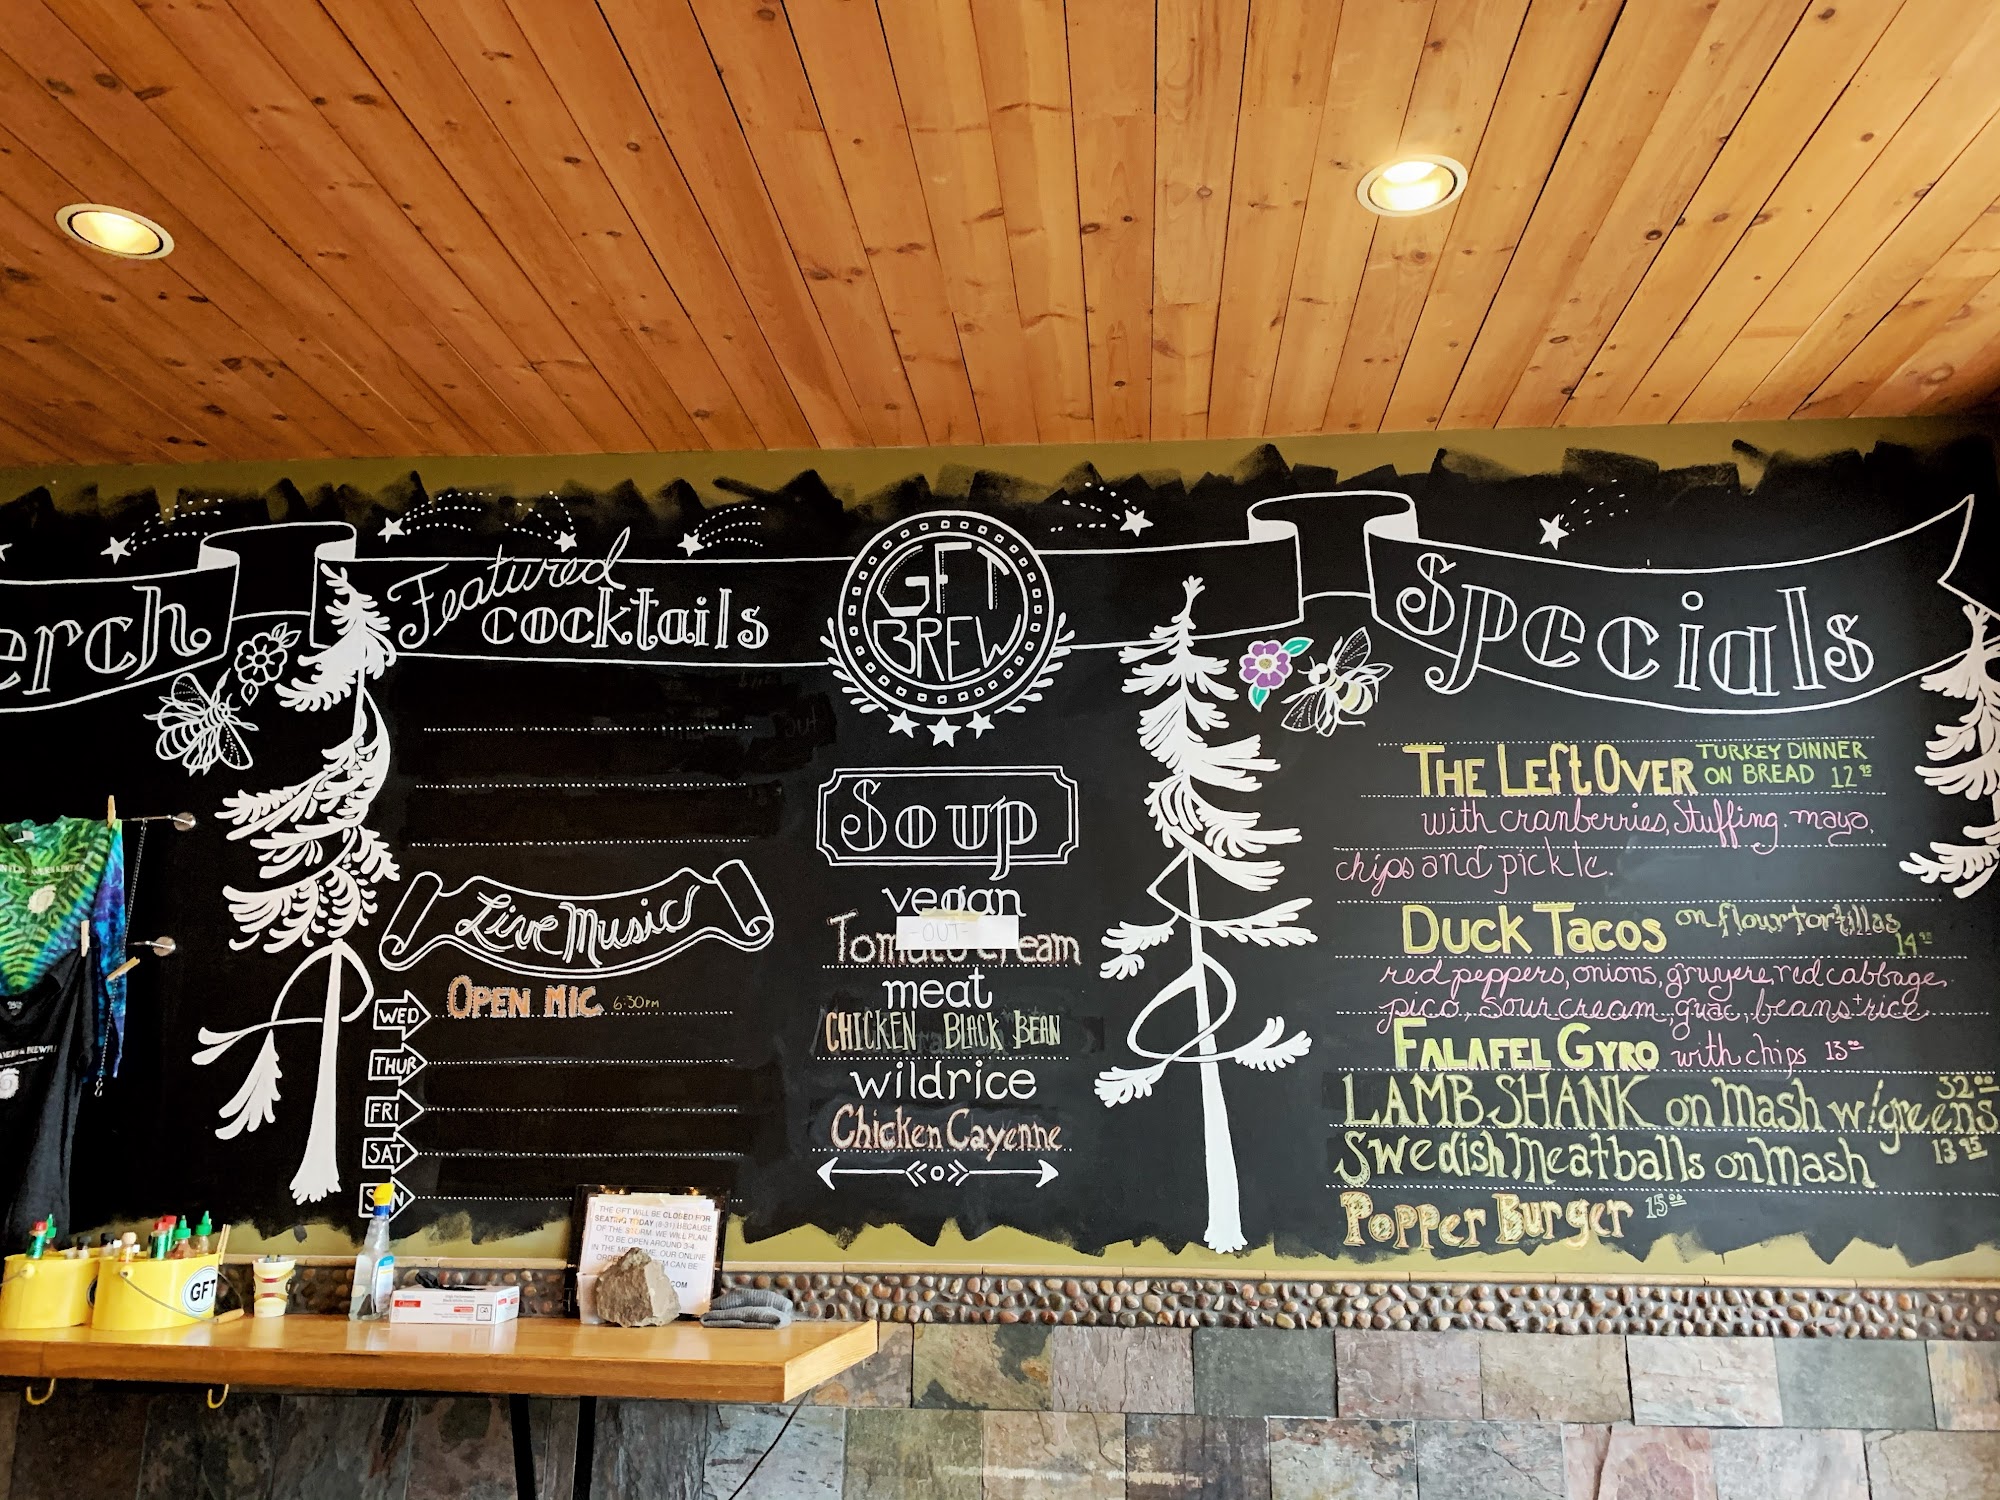 erch
Featured
cocktails
GFT
BREW
Specials
Live Music
OPEN MIC 6:30PM
WED
THUR
FRI
SAT
SUN
Soup
vegan
-OUT-
Tomato Cream
meat
CHICKEN BLACK BEAN
wildrice
Chicken Cayenne
THE LEFTOVER TURKEY DINNER
ON BREAD 12 95
with cranberries, stuffing, mayo,
chips and pickle.
DUCK TACOS on flour tortillas
14 95
red peppers, onions, gruyere, red cabbage,
pico, sour cream, guac, beans + rice
FALAFEL GYRO with chips 13
LAMB SHANK on mash w/greens 32 00
Swedish Meatballs on mash 13 95
Popper Burger 15
GFT
THE GFT WILL BE CLOSED FOR
SEATING TODAY BECAUSE
OF THE STORM. WE WILL PLAN
TO BE OPEN AROUND 3-4.
IN THE MEANTIME, OUR ONLINE
CAN BE
.COM